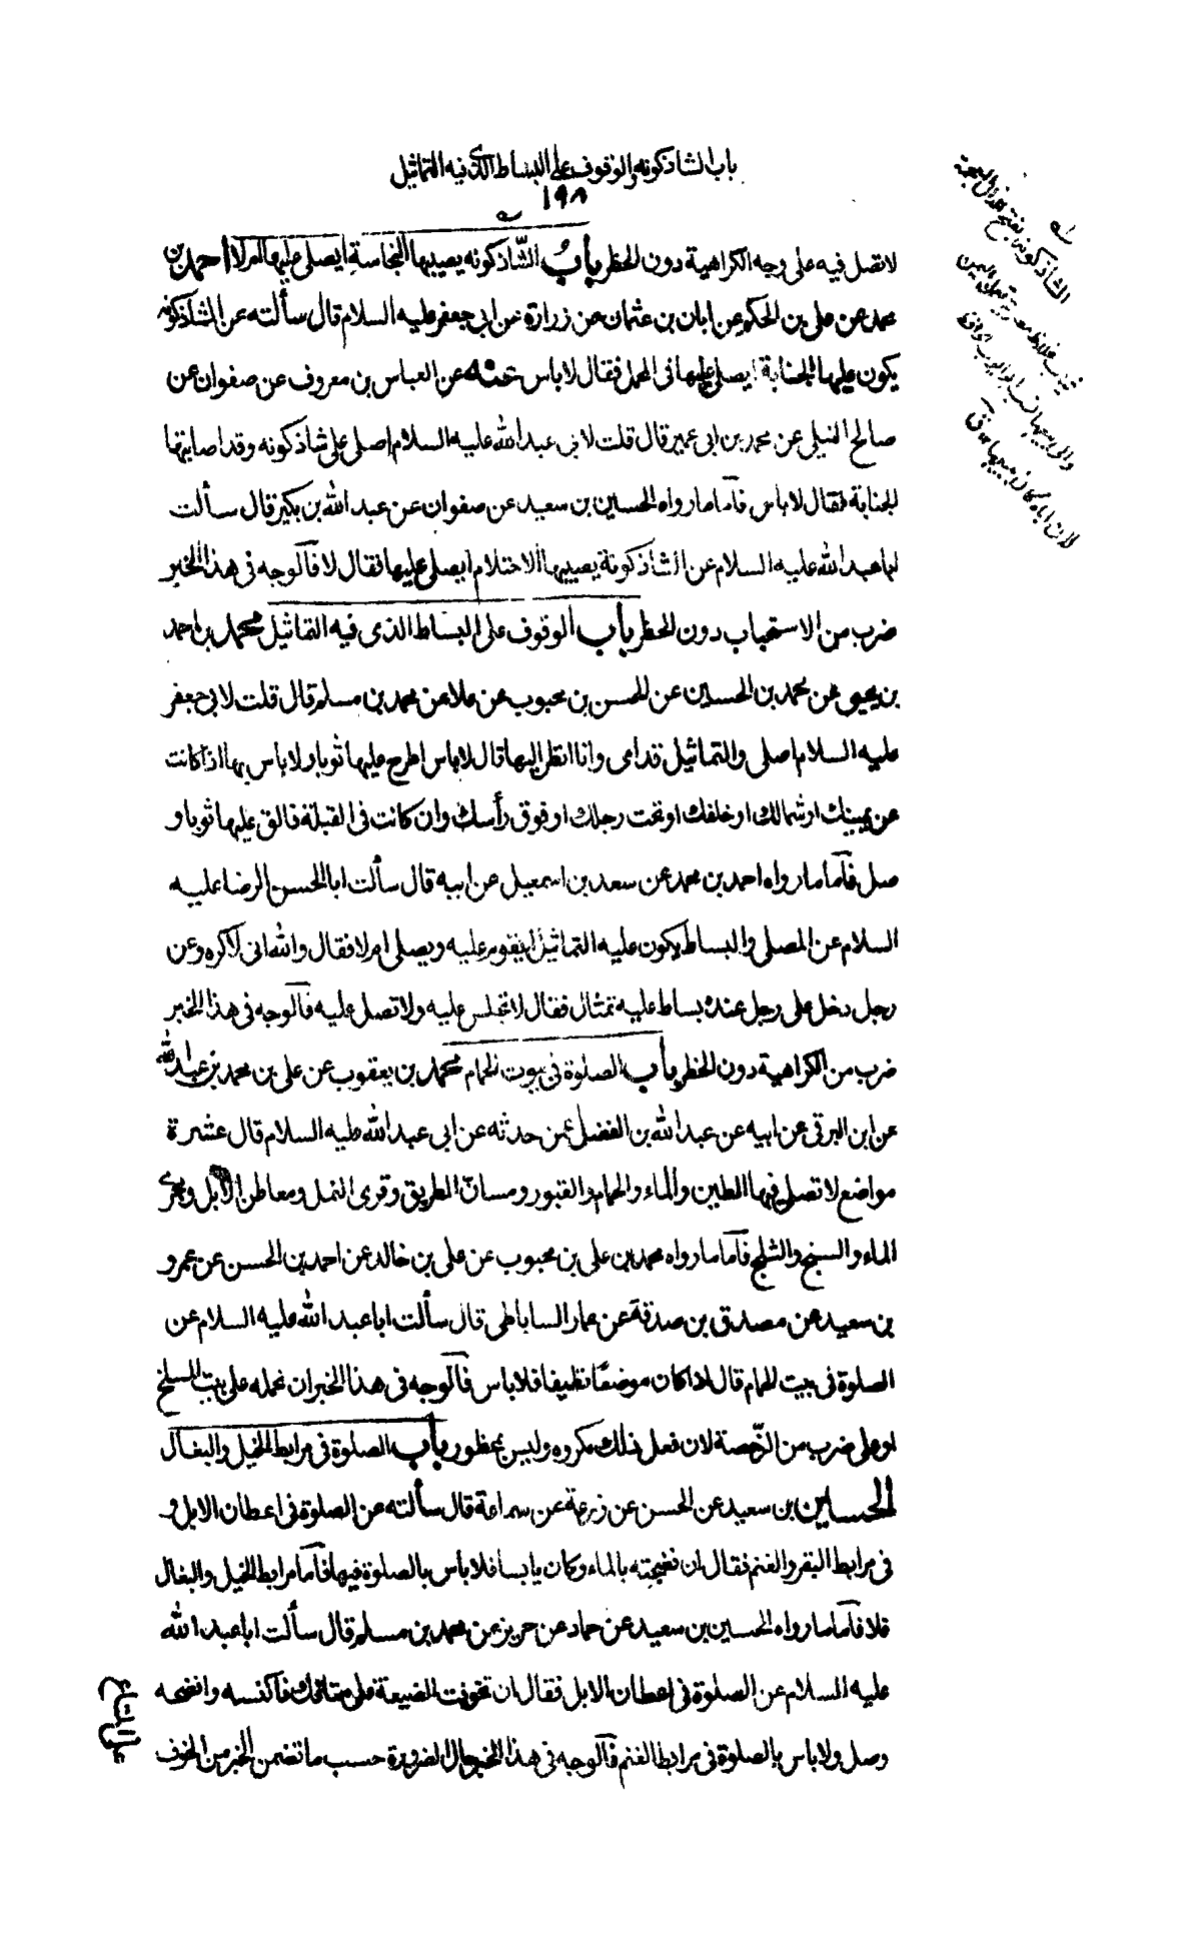 باب الشاذكونه والوقوف على البساط الذى فيه التماثيل
١٩٨
لا تصل فيه على وجه الكراهية دون الحظر باب الشّاذكونه يصيبها النجاسة ايصلى عليها ام لا احمد بن
محمد عن على بن الحكم عن ابان بن عثمان عن زرارة عن ابى جعفر عليه السلام قال سألته عن الشاذكونه
يكون عليها الجنابة ايصلى عليها فى المحمل فقال لا باس عنه عن العباس بن معروف عن صفوان عن
صالح النيلى عن محمد بن ابى عمير قال قلت لابى عبد الله عليه السلام اصلى على شاذكونه وقد اصابتها
الجنابة فقال لا باس فآما ما رواه الحسين بن سعيد عن صفوان عن عبد الله بن بكير قال سألت
ابا عبد الله عليه السلام عن الشاذكونة يصيبها الاحتلام ايصلى عليها فقال لا فآلوجه فى هذا الخبر
ضرب من الاستحباب دون الحظر باب الوقوف على البساط الذى فيه التماثيل محمد بن احمد
بن يحيى عن محمد بن الحسين عن الحسن بن محبوب عن علا عن محمد بن مسلم قال قلت لابى جعفر
عليه السلام اصلى والتماثيل قدامى وانا انظر اليها قال لا باس اطرح عليها ثوبا ولا باس بها اذا كانت
عن يمينك او شمالك او خلفك او تحت رجلك او فوق رأسك وان كانت فى القبلة فالق عليها ثوبا و
صل فآما ما رواه احمد بن محمد عن سعد بن اسمعيل عن ابيه قال سألت ابا الحسن الرضا عليه
السلام عن المصلى والبساط يكون عليه التماثيل ايقوم عليه ويصلى ام لا فقال والله انى لاكره وعن
رجل دخل على رجل عنده بساط عليه تمثال فقال لا تجلس عليه ولا تصل عليه فآلوجه فى هذا الخبر
ضرب من الكراهية دون الحظر باب الصلوة فى بيوت الحمام محمد بن يعقوب عن على بن محمد بن عبد الله
عن ابن البرقى عن ابيه عن عبد الله بن الفضل عمن حدثه عن ابى عبد الله عليه السلام قال عشرة
مواضع لا تصلى فيها الطين والماء والحمام والقبور ومسانّ الطريق وقرى النمل ومعاطن الابل ومجرى
الماء والسبخ والثلج فآما ما رواه محمد بن على بن محبوب عن على بن خالد عن احمد بن الحسن عن عمرو
بن سعيد عن مصدق بن صدقة عن عمار الساباطى قال سألت ابا عبد الله عليه السلام عن
الصلوة فى بيت الحمام قال اذا كان موضعًا نظيفا فلا باس فآلوجه فى هذا الخبر ان نحمله على بيت المسلخ
او على ضرب من الرّخصة لان فعل ذلك مكروه وليس بمحظور باب الصلوة فى مرابط الخيل والبغال
الحسين بن سعيد عن الحسن عن زرعة عن سماعة قال سألته عن الصلوة فى اعطان الابل و
فى مرابط البقر والغنم فقال ان نضحته بالماء وكان يابسا فلا بأس بالصلوة فيها فآما مرابط الخيل والبغال
فلا فآما ما رواه الحسين بن سعيد عن حماد عن حريز عن محمد بن مسلم قال سألت ابا عبد الله
عليه السلام عن الصلوة فى اعطان الابل فقال ان تخوفت الضيعة على متاعك فآكنسه وانضحه
وصل ولا باس بالصلوة فى مرابط الغنم فآلوجه فى هذا الخبر حال الضرورة حسب ما تضمن الخبر من الخوف